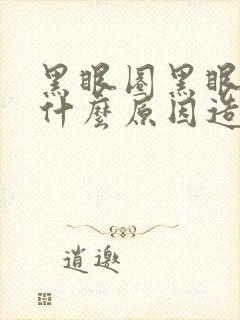 黑眼圈黑眼
什麼原因造
逍遨